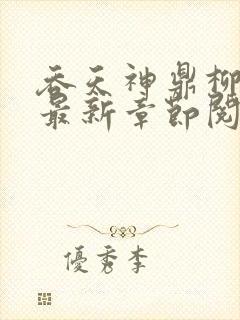 吞天神鼎柳
最新章節閱
優秀李